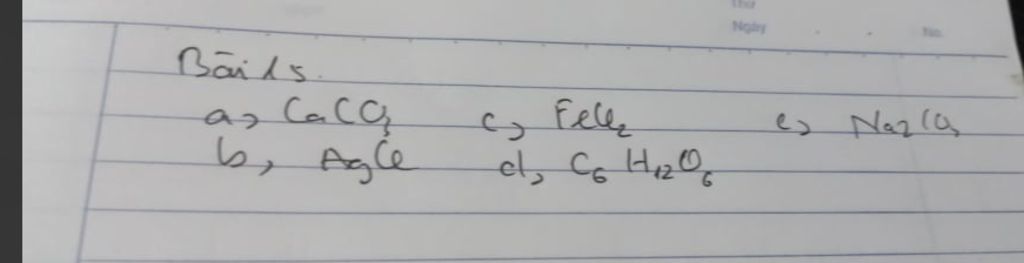 Thứ
Ngày No.
Bài 15.
a, CaCO3 c, FeCl2 e, Na2CO3
b, AgCl d, C6H12O6